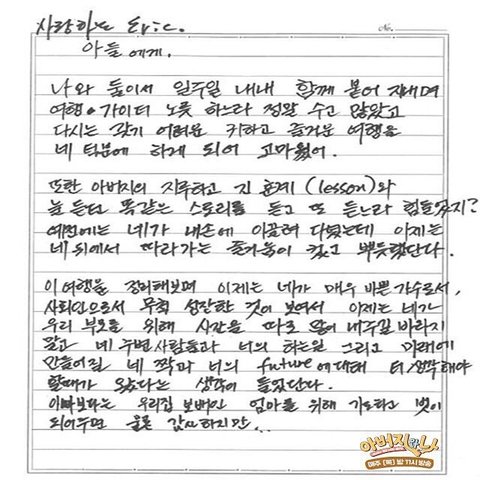 사랑하는 Eric.
No.
아들에게.
나와 둘이서 일주일 내내 함께 붙어 지내며
여행 가이더 노릇 하느라 정말 수고 많았고
다시는 갖기 어려운 귀하고 즐거운 여행을
네 덕분에 하게 되어 고마웠어.
또한 아버지의 지루하고 긴 훈계 (lesson)와
늘 듣던 똑같은 스토리를 듣고 또 듣느라 힘들었지?
예전에는 네가 내손에 이끌려 다녔는데 이제는
네 뒤에서 따라가는 즐거움이 컸고 뿌듯했단다.
이 여행을 정리해보며 이제는 네가 매우 바쁜 가수로서,
사회인으로서 무척 성장한 것이 보여서 이제는 네가
우리 부모를 위해 시간을 따로 많이 내주길 바라지
말고 네 주변 사람들과 너의 하는일 그리고 미래에
만들어질 네 짝과 너의 future에 대해 더 생각해야
할때가 왔다는 생각이 들었단다.
아빠보다는 우리집 보배인 엄마를 위해 기도하고 벗이
되어주면 물론 감사하지만...
아버지와 나
매주 [목] 밤 11시 방송